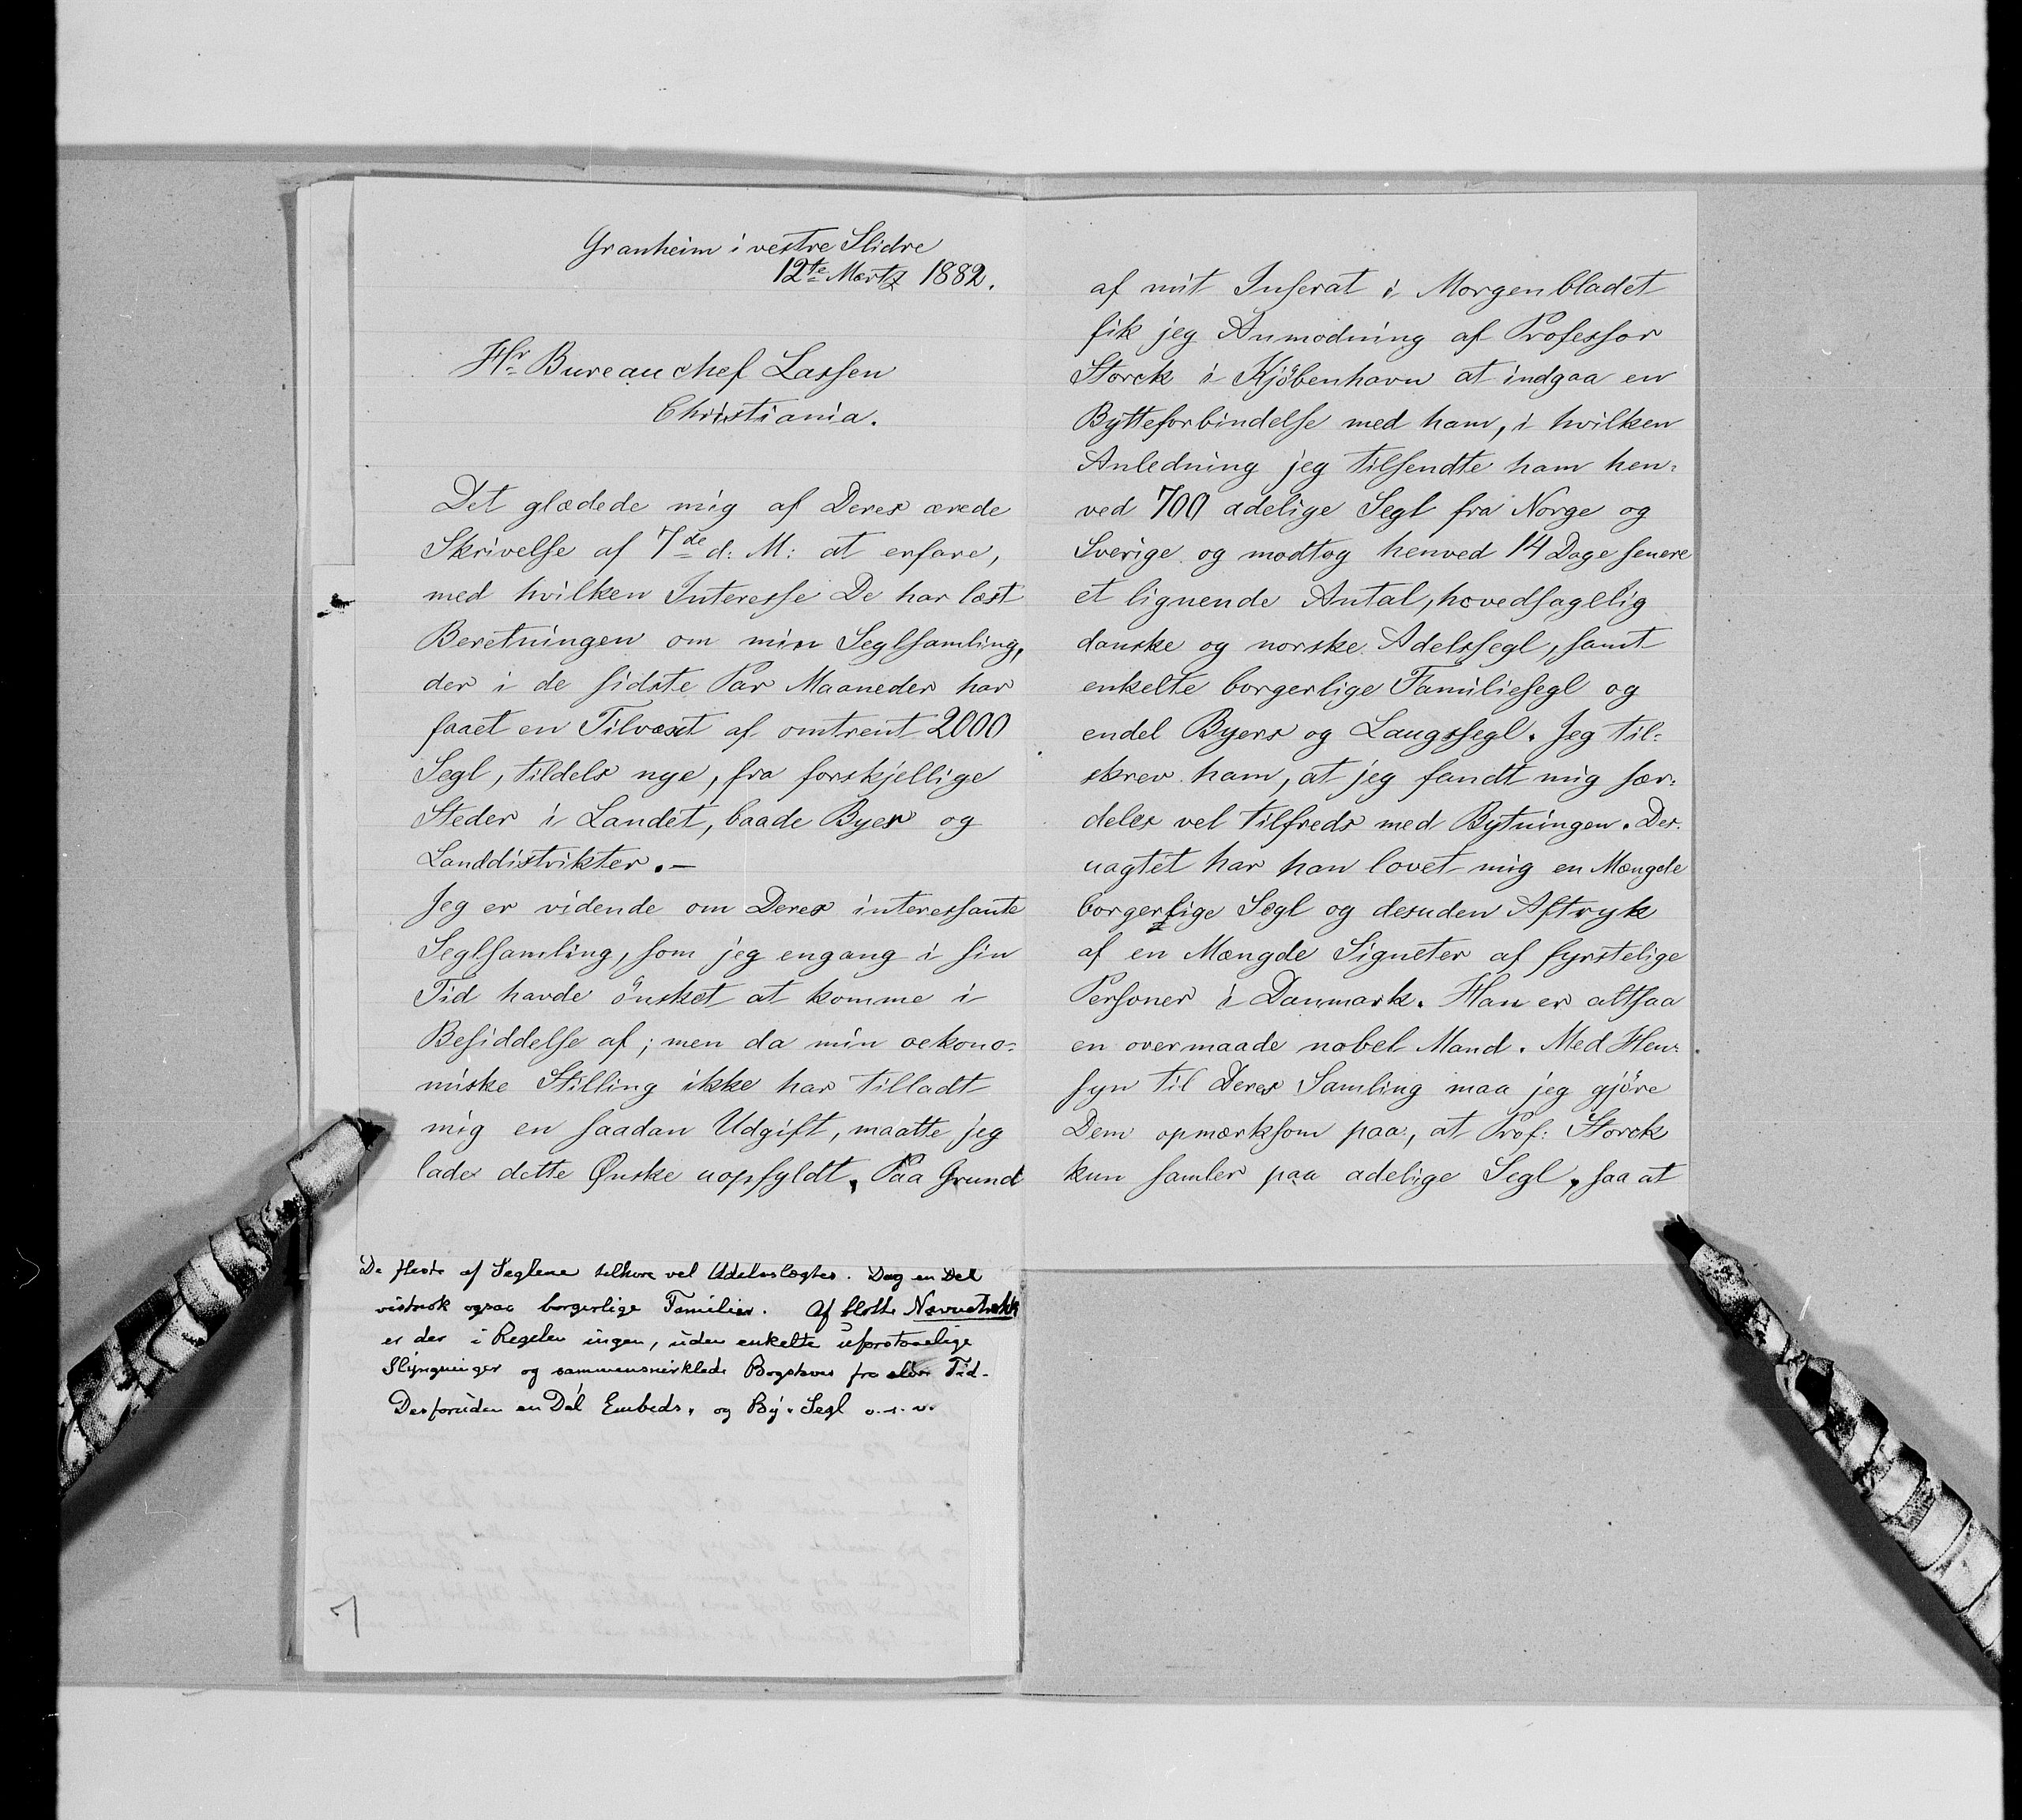 Granheim i vestre Slidre
12te Martz 1882.
Hr Bureauchef Lassen
Christiania.
Det glædede mig af Deres ærede
Skrivelse af 7de d: M: at erfare,
med hvilken Interesse De har læst
Beretningen om min Seglsamling,
der i de sidste Par Maaneder har
faaet en Tilvæxt af omtrent 2000
Segl, tildels nye, fra forskjellige
Steder i Landet, baade Byer og
Landdistrikter.—
Jeg er vidende om Deres interessante
Seglsamling, som jeg engang i sin
Tid havde önsket at komme i
Besiddelse af; men da min oekono-
miske Stilling ikke har tilladt
mig en saadan Udgift, maatte jeg
lade dette Ønske uopfyldt. Paa Grund
De fleste af Seglene tilhøre vel Adelsslægter. Dog en Del
vistnok ogsaa borgerlige Familier. Af blotte Navnetræk
er der i Regelen ingen, uden enkelte uforstaaelige
Slyngninger og sammensnirklede Bogstaver fra eldre Tid.
Desforuden en Del Embeds- og By-Segl o. s. v.
7
af mit Inserat i Morgenbladet
fik jeg Anmodning af Professor
Storck i Kjöbenhavn at indgaa en
Bytteforbindelse med ham, i hvilken
Anledning jeg tilsendte ham hen-
ved 700 adelige Segl fra Norge og
Sverige og modtog henved 14 Dage senere
et lignende Antal, hovedsagelig
danske og norske Adelssegl, samt
enkelte borgerlige Familiesegl og
endel Byers og Laugssegl. Jeg til-
skrev ham, at jeg fandt mig sær-
deles vel tilfreds med Bytningen. Des-
uagtet har han lovet mig en Mængde
borgerlige Segl og desuden Aftryk
af en Mængde Signeter af fyrstelige
Personer i Danmark. Han er altsaa
en overmaade nobel Mand. Med Hen-
syn til Deres Samling maa jeg gjöre
Dem opmærksom paa, at Prof: Storck
kun samler paa adelige Segl, saa at